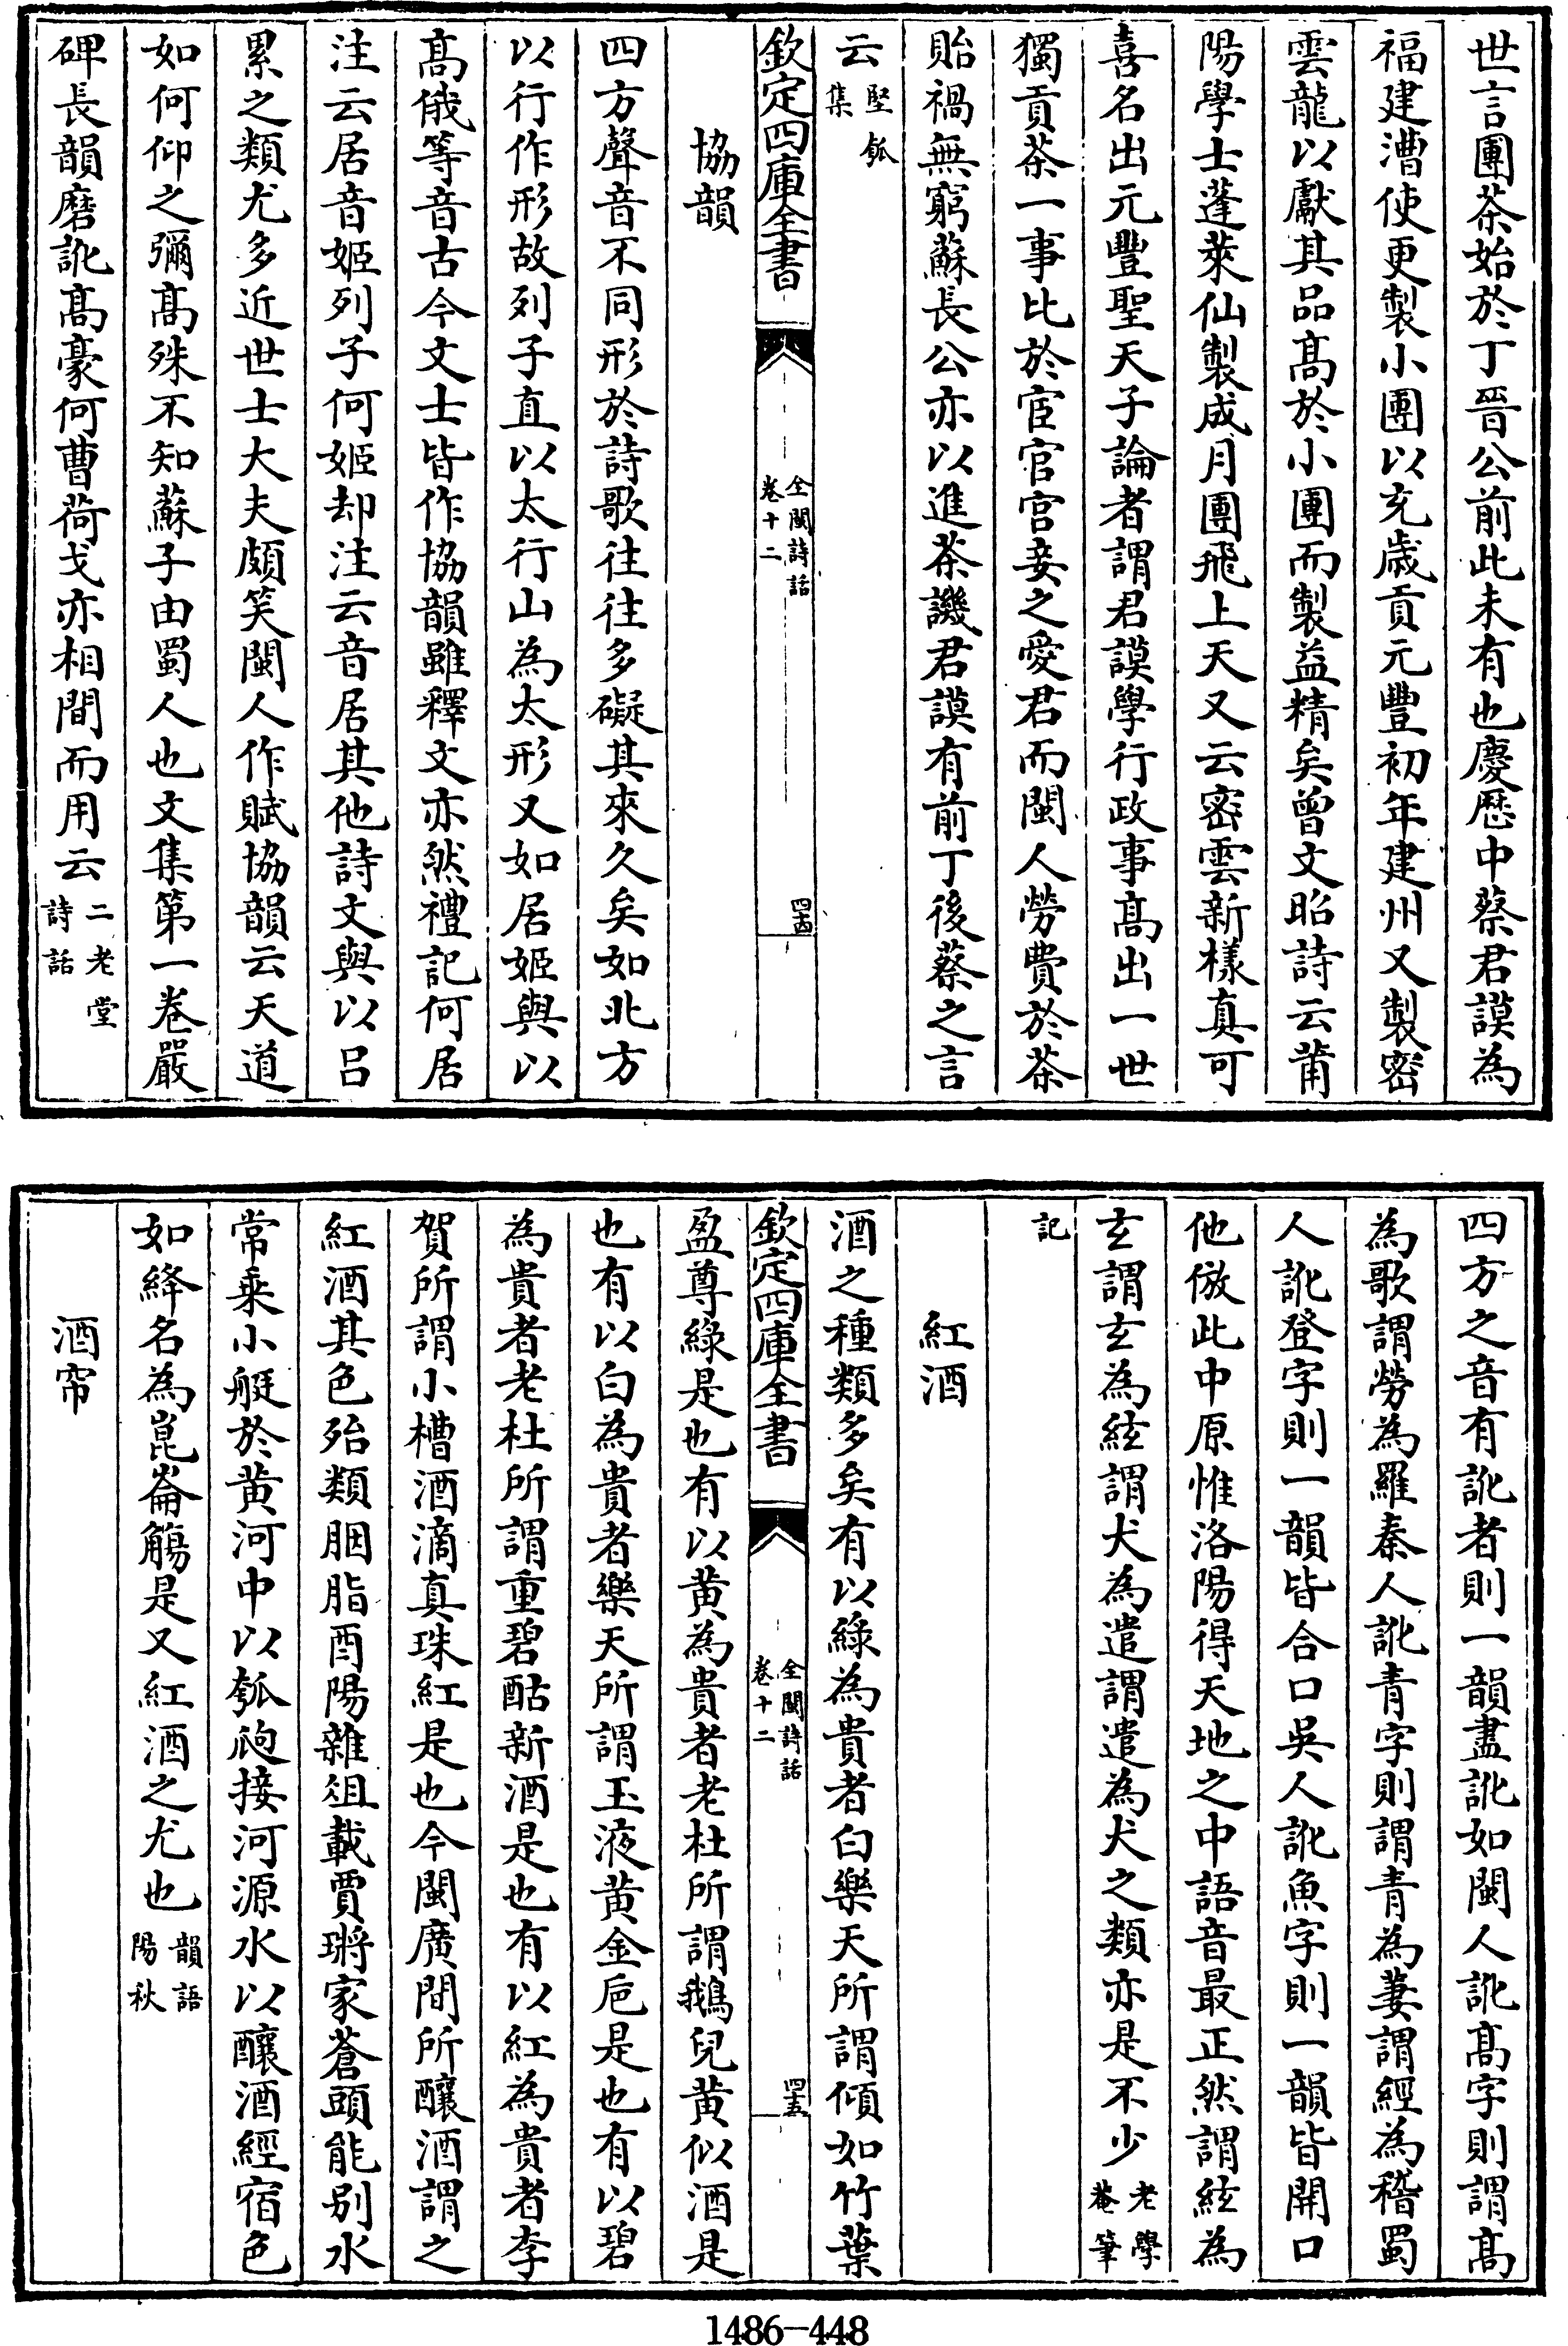 世言團茶始於丁晉公前此未有也慶歷中蔡君謨為
福建漕使更製小團以充歲貢元豐初年建州又製密
雲龍以獻其品髙於小團而製益精矣曾文昭詩云莆
陽學士蓬萊仙製成月團飛上天又云密雲新樣真可
喜名出元豐聖天子論者謂君謨學行政事髙出一世
獨貢茶一事比於宦官宫妾之愛君而閩人勞費於茶
貽禍無窮蘇長公亦以進茶譏君謨有前丁後蔡之言
云堅瓠集
欽定四庫全書
全閩詩話
卷十二
四古
協韻
四方聲音不同形於詩歌往往多礙其來久矣如北方
以行作形故列子直以太行山為太形又如居姬與以
髙俄等音古今文士皆作協韻雖釋文亦然禮記何居
注云居音姬列子何姬却注云音居其他詩文與以吕
累之類尤多近世士大夫頗笑閩人作賦協韻云天道
如何仰之彌髙殊不知蘇子由蜀人也文集第一卷嚴
碑長韻磨訛髙豪何曹荷戈亦相間而用云二老堂詩話
四方之音有訛者則一韻盡訛如閩人訛髙字則謂髙
為歌謂勞為羅秦人訛青字則謂青為萋謂經為稽蜀
人訛登字則一韻皆合口吳人訛魚字則一韻皆開口
他倣此中原惟洛陽得天地之中語音最正然謂絃為
玄謂玄為絃謂犬為遣謂遣為犬之類亦是不少老學菴筆
記
紅酒
酒之種類多矣有以綠為貴者白樂天所謂傾如竹葉
欽定四庫全書
全閩詩話
卷十二
四十五
盈尊綠是也有以黄為貴者老杜所謂鵝兒黄似酒是
也有以白為貴者樂天所謂玉液黄金巵是也有以碧
為貴者老杜所謂重碧酤新酒是也有以紅為貴者李
賀所謂小槽酒滴真珠紅是也今閩廣間所釀酒謂之
紅酒其色殆類胭脂酉陽雜俎載賈璘家蒼頭能别水
常乗小艇於黄河中以瓠瓟接河源水以釀酒經宿色
如絳名為崑崙觴是又紅酒之尤也韻語陽秋
酒帘
1486-448